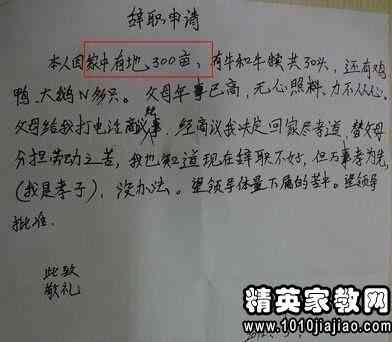 辞职申请
本人因家中有地300亩,有牛和牛犊共30头,还有鸡
鸭、大鹅N多只。父母年事已高,无心照料,力不从心。
父母给我打电话商议此事,经商议我决定回家尽孝道,替父母
分担劳动之苦,我也知道现在辞职不好,但万事孝为先
(我是孝子),没办法。望领导体量下属的苦半。望领导
批准。
此致
敬礼
精英家教网
www.1010jiajiao.com